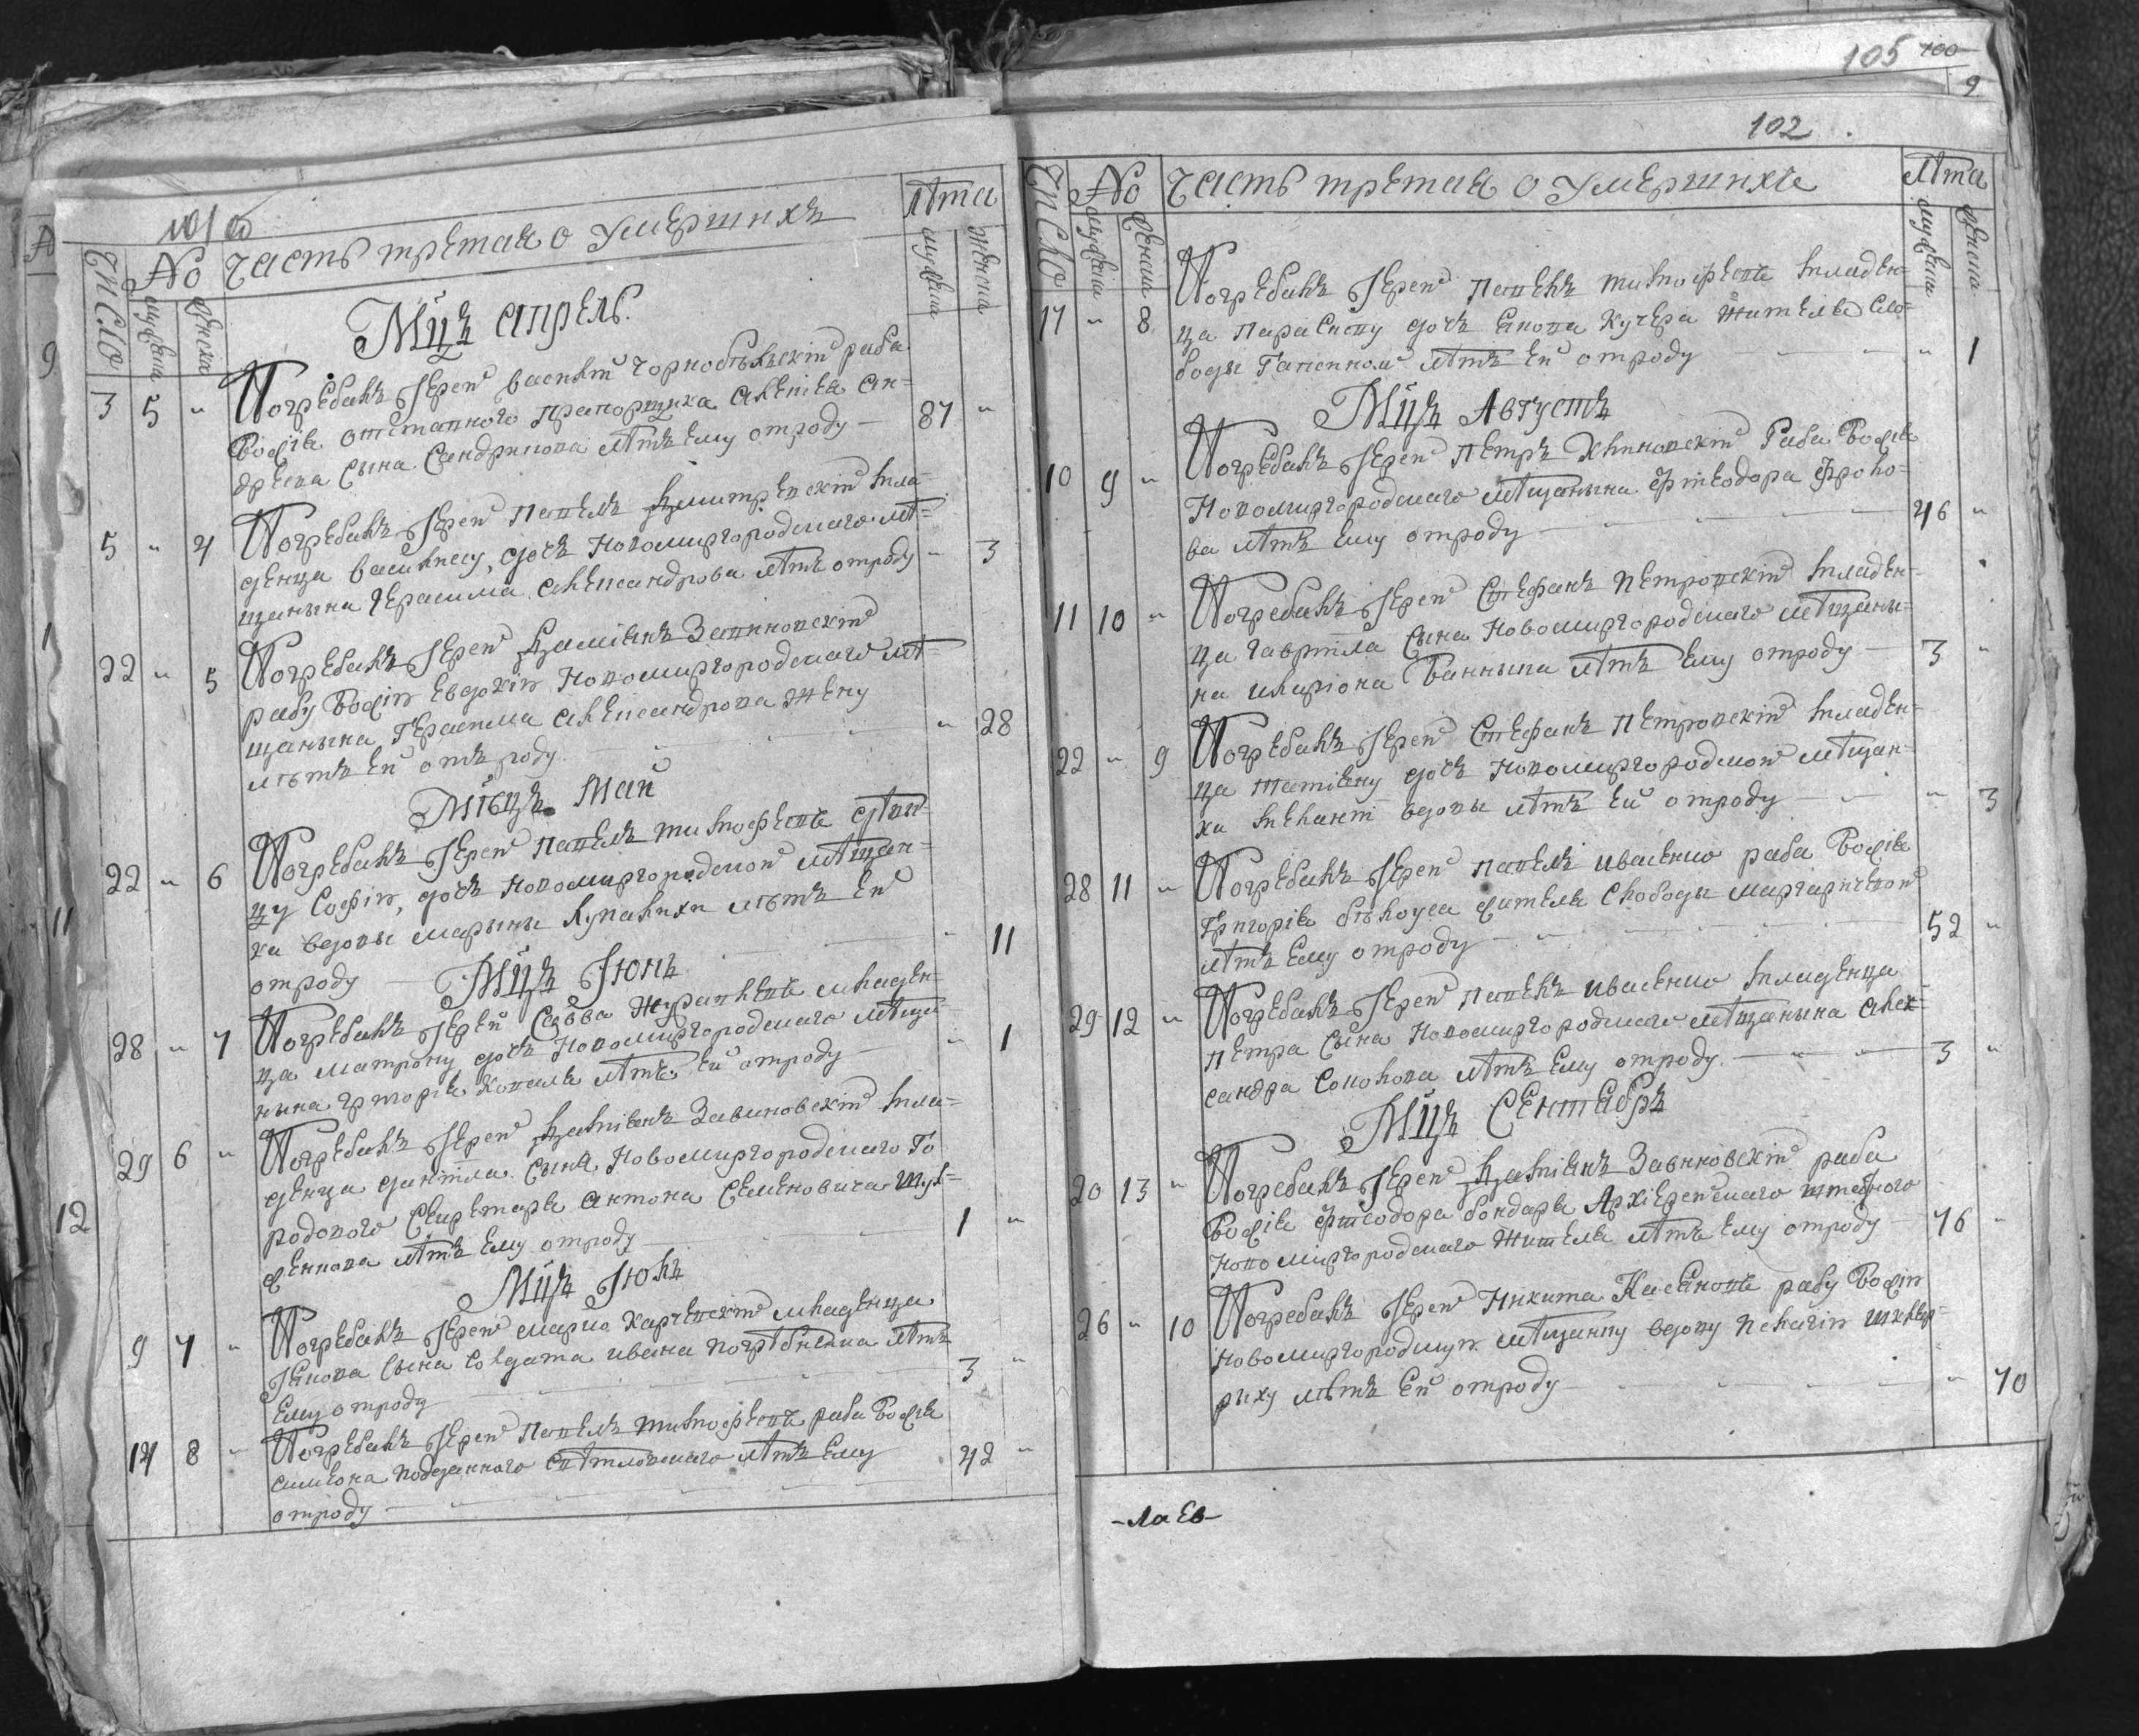 101
Число № Часть третая о Умершихъ Лѣта
мужеска женска мужеска женска
Мцъ Апрель
3 5 " Погребалъ Іерей Василій Чорнобѣльскій раба
Божія отставного прапорщика Алексѣя Ан=
дреева сына Сандрикова лѣтъ ему отроду — 87 "
5 " 4 Погребалъ Іерей Павелъ Дмитревскій мла=
денца Василису, дочь Новомиргородскаго мѣ=
щанина Герасима Александрова лѣтъ отроду " 3
22 " 5 Погребалъ Іерей Даміянъ Завиновскій
рабу Божію Евдокію Новомиргородскаго мѣ=
щанина Герасима Александрова жену
лѣтъ ей отъ роду " 28
Мѣсцъ Май
22 " 6 Погребалъ Іерей Павелъ Тимофѣевъ дѣви=
цу Софію, дочь Новомиргородской мѣщан=
ка вдовы Марыны Лупалихи лѣтъ ей
отроду " 11
Мцъ Іюнь
28 " 7 Погребалъ Іерей Савва Журавлевъ младен=
ца Матрону дочь Новомиргородскаго мѣща=
нина Григорія Коваля лѣтъ ей отроду — " 1
29 6 " Погребалъ Іерей Даміянъ Завиновскій мла=
денца Даніила сына Новомиргородскаго Го
родового Секретаря Антона Семеновича Шул=
женкова лѣтъ ему отроду 1 "
Мцъ Іюль
9 7 " Погребалъ Іерей Марко Харчевскій младенца
Іякова сына Солдата Ивана Погрѣбняка лѣтъ
ему отроду 3 "
14 8 " Погребалъ Іерей Павелъ Тимофѣевъ раба Божія
Симеона Подданного Свѣтловскаго лѣтъ ему
отроду — 42 "
105 100
9
102
Число № Часть третая о Умершихъ Лѣта
мужеска женска мужеска женска
17 " 8 Погребалъ Іерей Павелъ Тимофѣевъ младен=
ца Параскеву дочь Якова Кучера жителя Сло=
боды лѣтъ ей отроду — " 1
Мцъ Августъ
10 9 " Погребалъ Іерей Петръ Хлиновскій Раба Божія
Новомиргородскаго мѣщанина Фтеодора Фроло=
ва лѣтъ ему отроду — 46 "
11 10 " Погребалъ Іерей Стефанъ Петровскій младен=
ца Гавріила сына Новомиргородскаго мѣщани=
на Иларіона Банныка лѣтъ ему отроду — 3 "
22 " 9 Погребалъ Іерей Стефанъ Петровскій младен=
ца Татіяну дочь Новомиргородской мѣщан=
ка Меланіи вдовы лѣтъ ей отроду — " 3
28 11 " Погребалъ Іерей Павелъ Иваненко раба Божія
Григорія Бѣлоуса жителя Слободы
лѣтъ ему отроду — 52 "
29 12 " Погребалъ Іерей Павелъ Иваненко младенца
Петра сына Новомиргородскаго мѣщанина Алек=
сандра Соколова лѣтъ ему отроду — 3 "
Мцъ Сентябрь
20 13 " Погребалъ Іерей Даміянъ Завиновскій раба
Божія Фтеодора Бондаря Архіерейскаго штатного
Новомиргородскаго жителя лѣтъ ему отроду 76 "
26 " 10 Погребалъ Іерей Никита Касяновъ рабу Божію
Новомиргородскую мѣщанку вдову Пелагію
рыху лѣтъ ей отроду — " 70